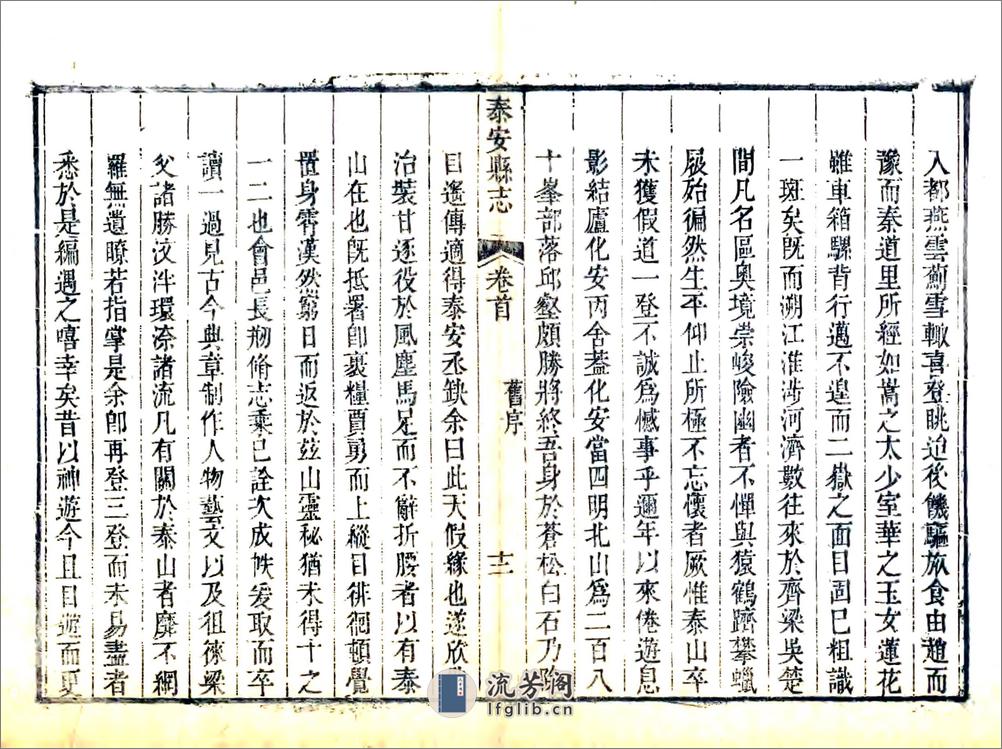 入都燕雲薊雪轍喜登眺迫後饑驅旅食由趙而
豫而秦道里所經如嵩之太少室華之玉女蓮花
雖車箱騾背行邁不遑而二嶽之面目固已粗識
一斑矣旣而溯江淮涉河濟數往來於齊梁吳楚
間凡名區奥境崇峻險幽者不憚與猿鶴躋攀蠟
屐殆徧然生平仰止所極不忘懷者厥惟泰山卒
未獲假道一登不誠爲憾事乎邇年以來倦遊息
影結廬化安丙舍葢化安當四明北山爲二百八
十峯部落邱壑頗勝將終吾身於蒼松白石乃
目遙傳適得泰安丞缺余曰此天假緣也遂欣
治裝甘逐役於風塵馬足而不辭折腰者以有泰
山在也旣抵署卽裹糧賈勇而上縱目徘徊頓覺
置身霄漢然窮日而返於兹山靈秘猶未得十之
一二也會邑長剏脩志乘已詮次成帙爰取而卒
讀一過見古今典章制作人物藝文以及徂徠梁
父諸勝汶泮環流諸流凡有關於泰山者靡不網
羅無遺瞭若指掌是余卽再登三登而未易盡者
悉於是編遇之嘻幸矣昔以神遊今且目遊而更
泰安縣志
卷首
舊序
十二
流芳阁
lfglib.cn